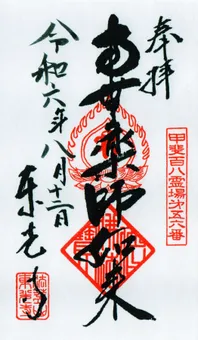 奉拝
甲斐百八霊場第五六番
薬師如来
令和六年八月十二日
東光寺